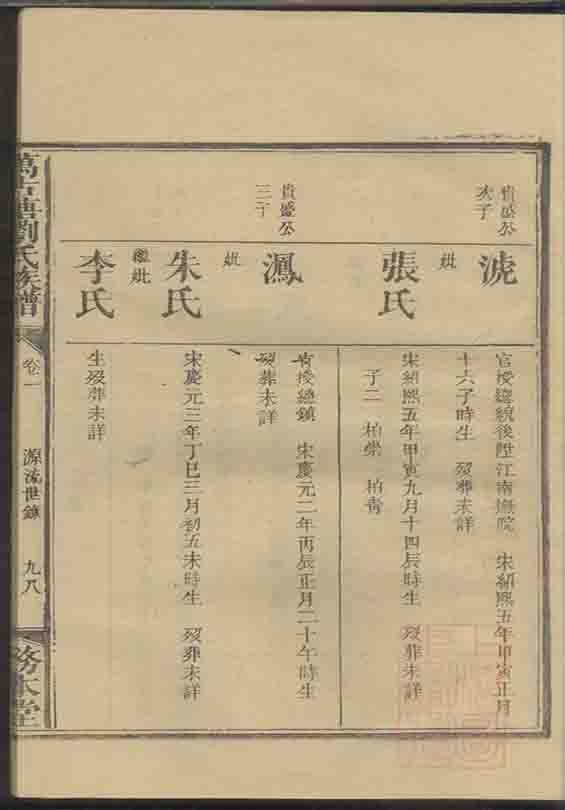 貴盛公
次子
淲
官授總統後陞江南撫院　宋紹熙五年甲寅正月
十六子時生　歿葬未詳
妣
張氏
宋紹熙五年甲寅九月十四辰時生　歿葬未詳
子二　柏崇　柏青
貴盛公
三子
灃
官授總鎮　宋慶元二年丙辰正月二十午時生
歿葬未詳
妣
朱氏
宋慶元三年丁巳三月初五未時生　歿葬未詳
繼妣
李氏
生歿葬未詳
萬古塘劉氏族譜
卷一
源流世錄
九八
務本堂